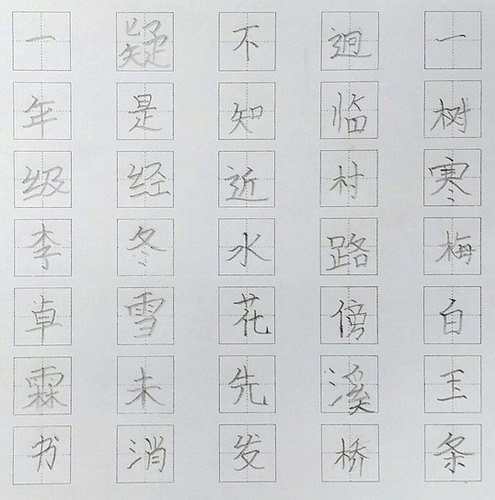 一树寒梅白王条
迥临村路傍溪桥
不知近水花先发
疑是经冬雪未消
一年级李卓霖书